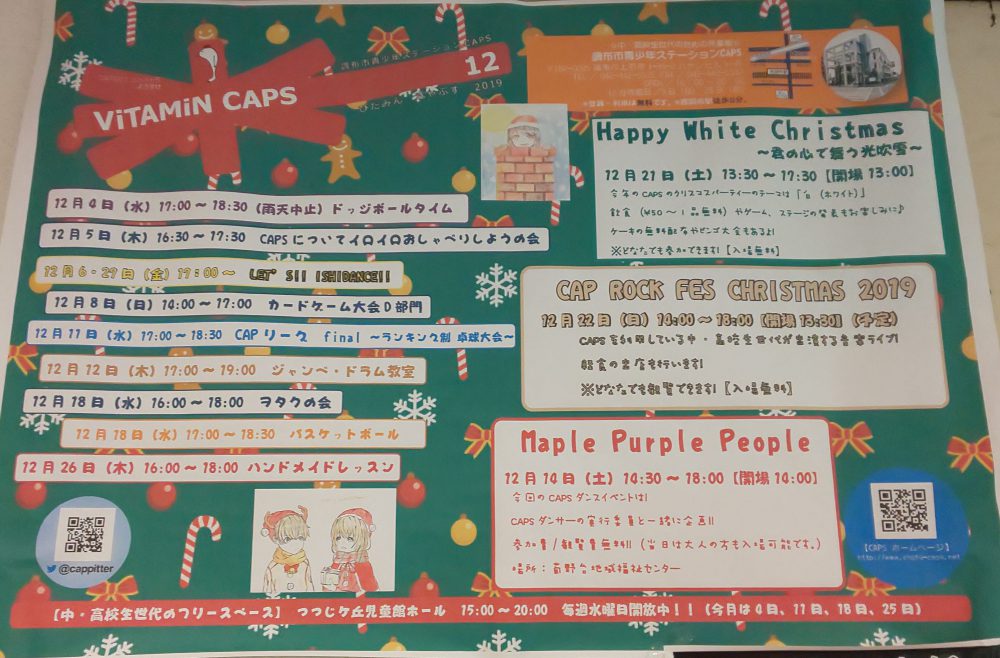 ViTAMiN CAPS
調布市青少年ステーションCAPS
12
びたみん きゃっぷす 2019
調布市青少年ステーションCAPS
Happy White Christmas
～君の心で舞う光吹雪～
12月21日（土）13:30～17:30【開場 13:00】
今年のCAPSのクリスマスパーティーのテーマは「白（ホワイト）」
飲食（¥50～1品無料）やゲーム、ステージの発表もお楽しみに♪
ケーキの無料配布やビンゴ大会もあるよ!
※どなたでも参加できます!【入場無料】
12月4日（水）17:00～18:30（雨天中止）ドッジボールタイム
12月5日（木）16:30～17:30 CAPSについてイロイロおしゃべりしようの会
12月6・27日（金）17:00～ LET'S!! ISHIDANCE!!
12月8日（日）14:00～17:00 カードゲーム大会D部門
12月11日（水）17:00～18:30 CAPリーグ final ～ランキング制 卓球大会～
12月12日（木）17:00～19:00 ジャンベ・ドラム教室
12月18日（水）16:00～18:00 ヲタクの会
12月18日（水）17:00～18:30 バスケットボール
12月26日（木）16:00～18:00 ハンドメイドレッスン
CAP ROCK FES CHRISTMAS 2019
12月22日（日）14:00～18:00【開場 13:30】（予定）
CAPSを利用している中・高校生世代が出演する音楽ライブ!
軽食の出店も行います!
※どなたでも観覧できます!【入場無料】
Maple Purple People
12月14日（土）14:30～18:00【開場 14:00】
今回のCAPSダンスイベントは!
CAPSダンサーの実行委員と一緒に企画!!
参加費/観覧費無料!!（当日は大人の方も入場可能です。）
場所：菊野台地域福祉センター
@cappitter
【CAPS ホームページ】
【中・高校生世代のフリースペース】 つつじケ丘児童館ホール 15:00～20:00 毎週水曜日開放中!!（今月は4日、11日、18日、25日）